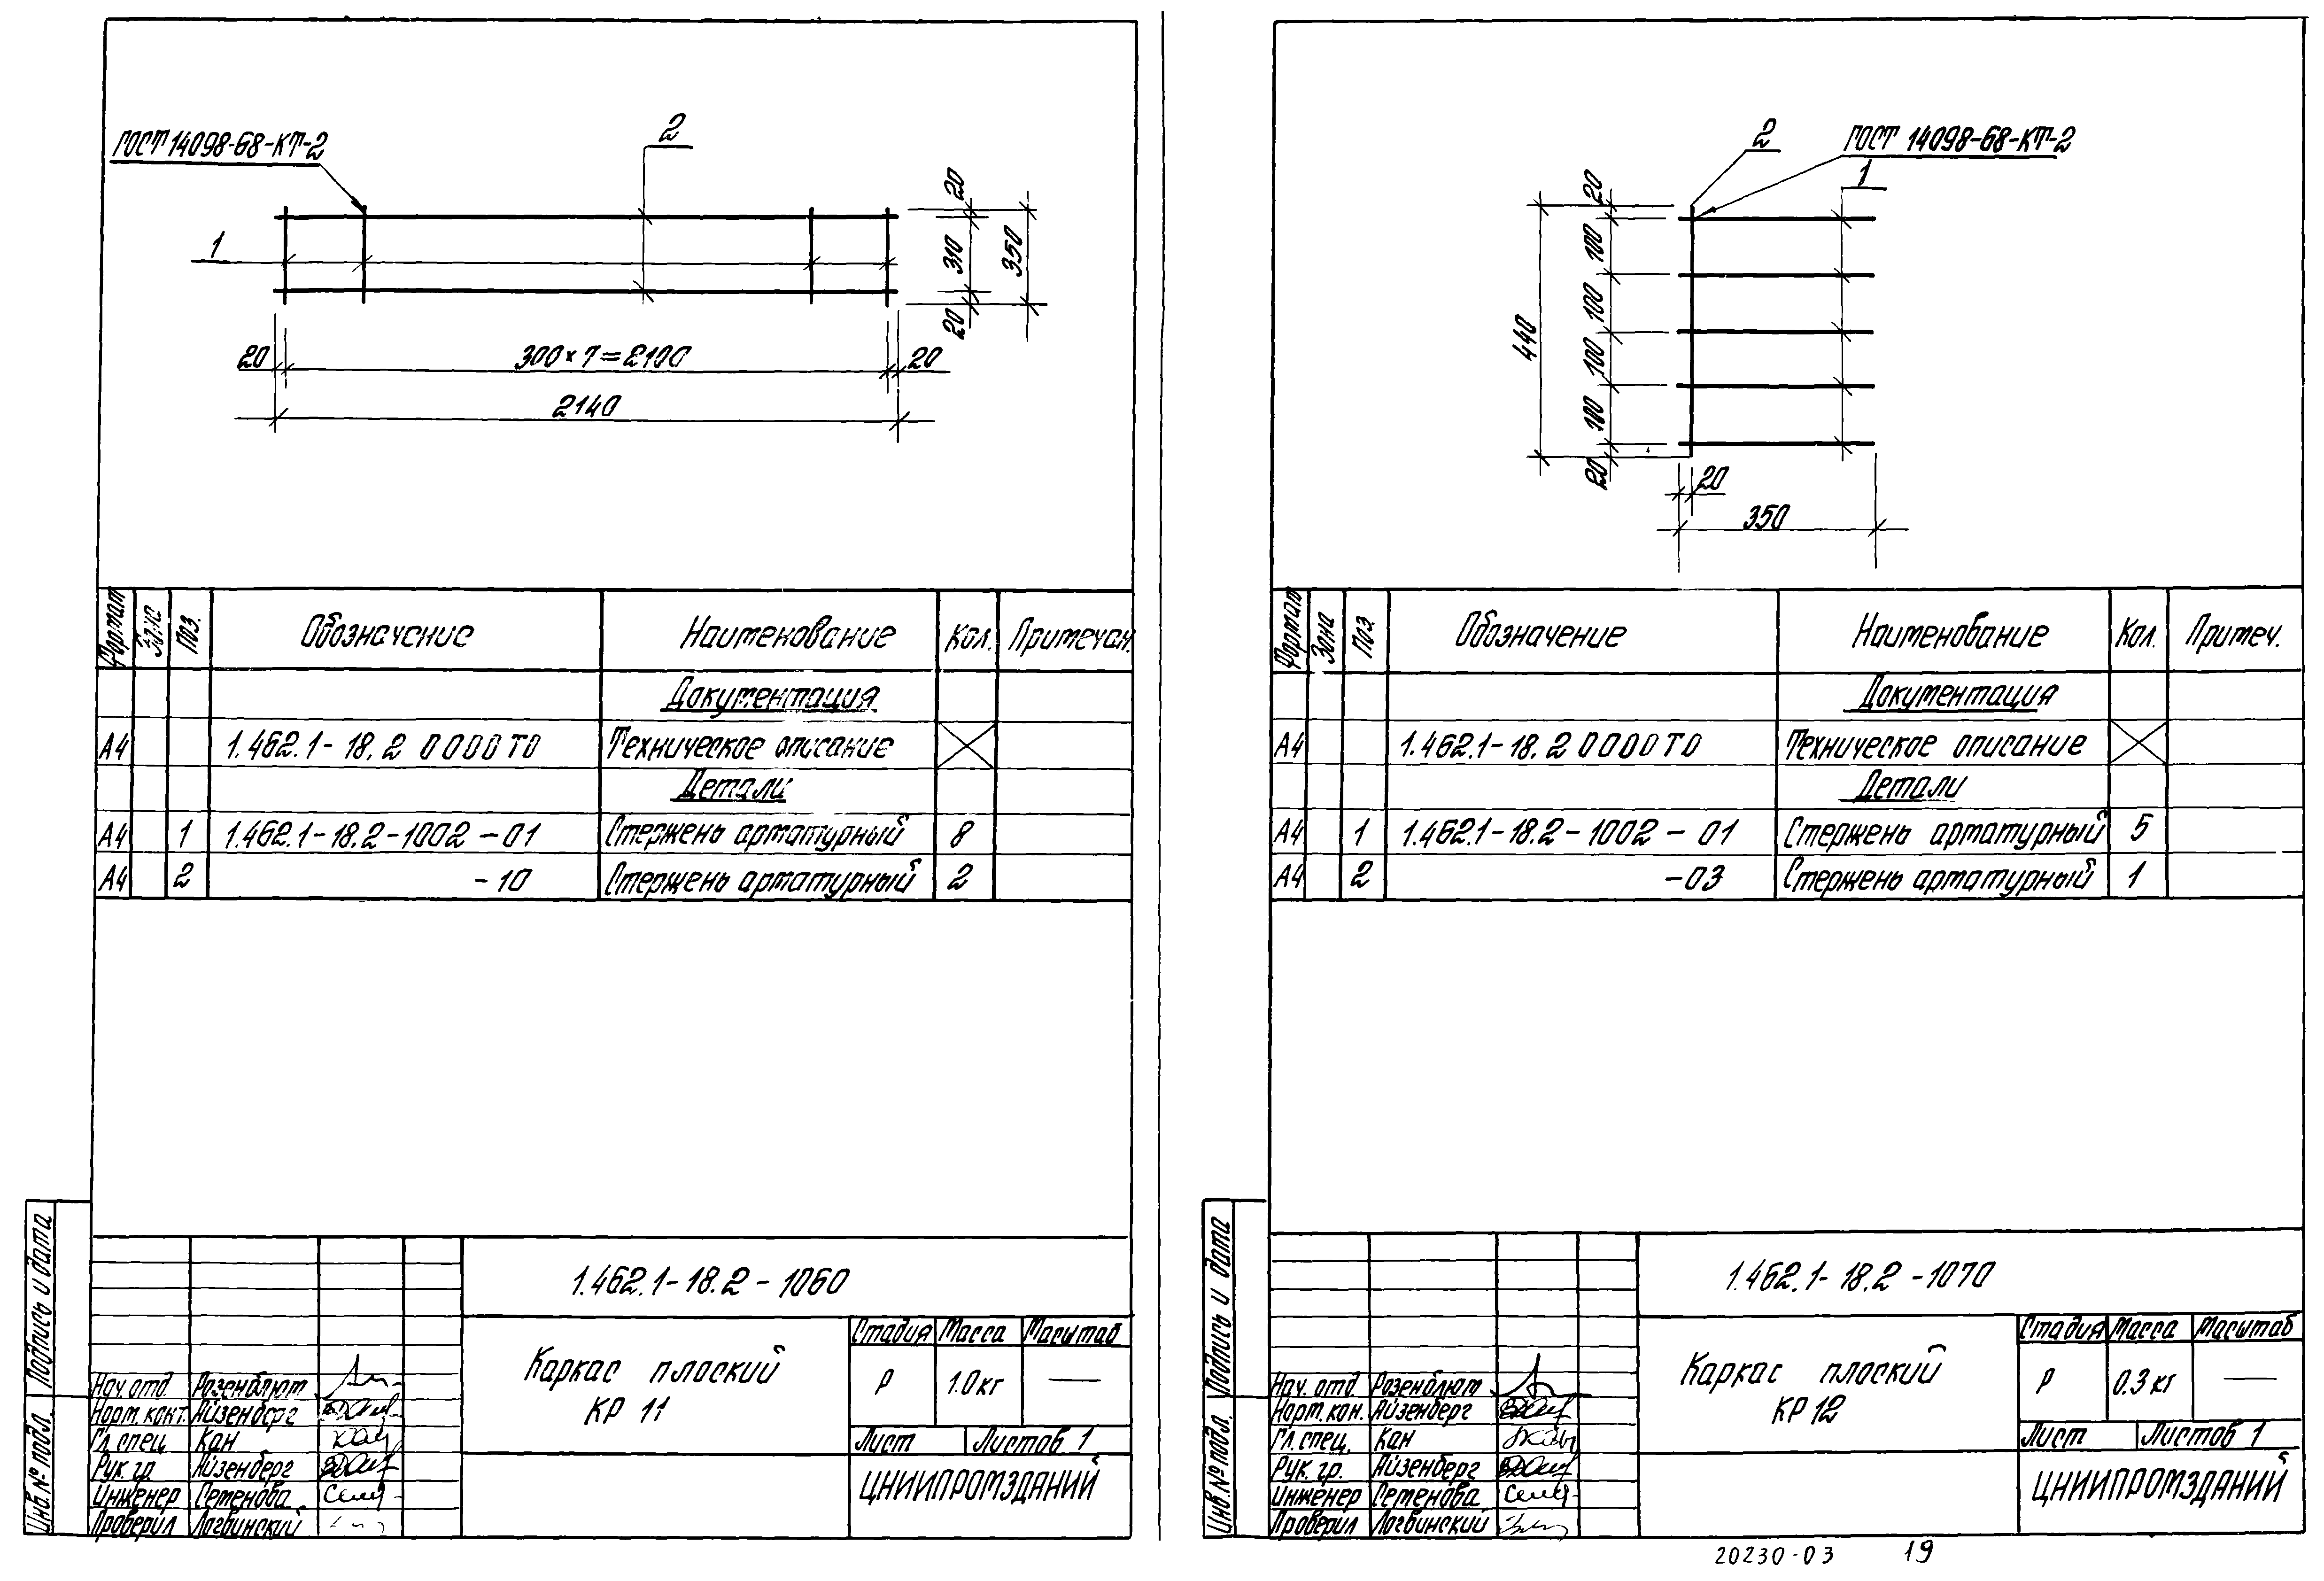 ГОСТ 14098-68-КТ-2
2
1
20
310
20
350
20
300×7=2100
20
2140
Формат
Зона
Поз.
Обозначение
Наименование
Кол.
Примечан.
Документация
А4 1.462.1-18.2 0000ТО Техническое описание
Детали
А4 1 1.462.1-18.2-1002-01 Стержень арматурный 8
А4 2 -10 Стержень арматурный 2
1.462.1-18.2-1060
Каркас плоский
КР 11
Стадия Масса Масштаб
Р 1.0кг —
Лист Листов 1
ЦНИИПРОМЗДАНИЙ
Нач. отд. Розенблют
Норм. конт. Айзенберг
Гл. спец. Кан
Рук. гр. Айзенберг
Инженер Семенова
Проверил Логвинский
Подпись и дата
Инв. № подл.
2
ГОСТ 14098-68-КТ-2
1
20
100
100
100
100
20
440
20
350
Формат
Зона
Поз.
Обозначение
Наименование
Кол.
Примеч.
Документация
А4 1.462.1-18.2 0000ТО Техническое описание
Детали
А4 1 1.462.1-18.2-1002-01 Стержень арматурный 5
А4 2 -03 Стержень арматурный 1
1.462.1-18.2-1070
Каркас плоский
КР 12
Стадия Масса Масштаб
Р 0.3 кг —
Лист Листов 1
ЦНИИПРОМЗДАНИЙ
Нач. отд. Розенблют
Норм. кон. Айзенберг
Гл. спец. Кан
Рук. гр. Айзенберг
Инженер Семенова
Проверил Логвинский
Подпись и дата
Инв. № подл.
20230-03 19